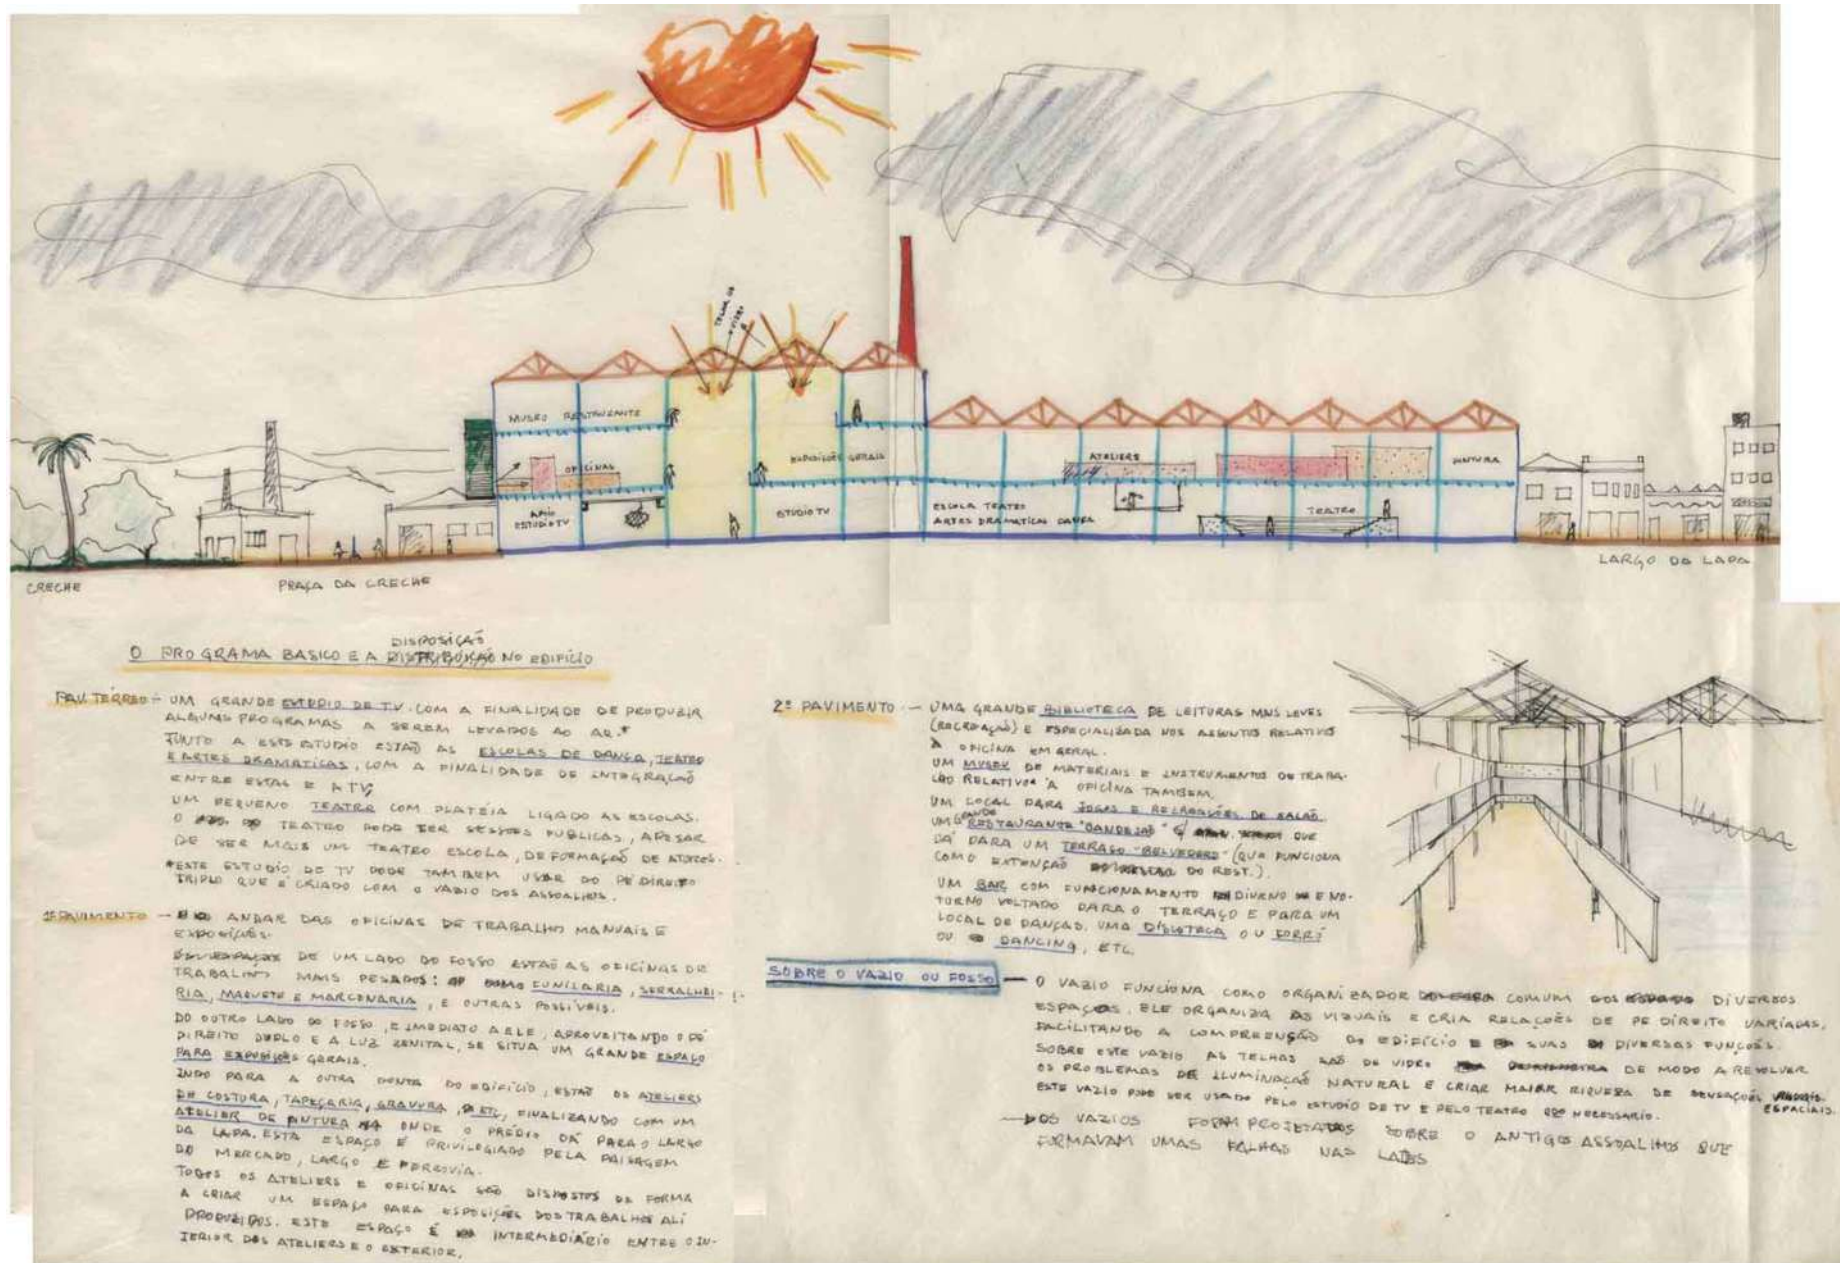 TELHA DE
VIDRO
MUSEO RESTAURANTE
OFICINAS
EXPOSIÇÕES GERAIS
ATELIERS
PINTURA
APOIO
ESTUDIO TV
ESTUDIO TV
ESCOLA TEATRO
ARTES DRAMATICAS DANÇA
TEATRO
CRECHE
PRAÇA DA CRECHE
LARGO DA LAPA
DISPOSIÇÃO
O PROGRAMA BASICO E A DISTRIBUIÇÃO NO EDIFÍCIO
PAV. TÉRREO - UM GRANDE ESTUDIO DE TV. COM A FINALIDADE DE PRODUZIR
ALGUNS PROGRAMAS A SEREM LEVADOS AO AR.*
JUNTO A ESTE ESTUDIO ESTAÕ AS ESCOLAS DE DANÇA, TEATRO
E ARTES DRAMATICAS, COM A FINALIDADE DE INTEGRAÇAÕ
ENTRE ESTAS E A TV,
UM PEQUENO TEATRO COM PLATÉIA LIGADO AS ESCOLAS.
O TEATRO PODE TER SESSÕES PUBLICAS, APESAR
DE SER MAIS UM TEATRO ESCOLA, DE FORMAÇAÕ DE ATORES.
*ESTE ESTUDIO DE TV PODE TAMBEM USAR DO PÉ DIREITO
TRIPLO QUE É CRIADO COM O VAZIO DOS ASSOALHOS.
1º PAVIMENTO - ANDAR DAS OFICINAS DE TRABALHO MANUAIS E
EXPOSIÇÕES.
DE UM LADO DO FOSSO ESTAÕ AS OFICINAS DE
TRABALHO MAIS PESADOS: COMO FUNILARIA, SERRALHE-
RIA, MAQUETE E MARCENARIA, E OUTRAS POSSÍVEIS.
DO OUTRO LADO DO FOSSO, E IMEDIATO A ELE, APROVEITANDO O PÉ
DIREITO DUPLO E A LUZ ZENITAL, SE SITUA UM GRANDE ESPAÇO
PARA EXPOSIÇÕES GERAIS.
INDO PARA A OUTRA PONTA DO EDIFÍCIO, ESTAÕ OS ATELIERS
DE COSTURA, TAPEÇARIA, GRAVURA, ETC, FINALIZANDO COM UM
ATELIER DE PINTURA ONDE O PRÉDIO DÁ PARA O LARGO
DA LAPA. ESTA ESPAÇO É PRIVILEGIADO PELA PAISAGEM
DO MERCADO, LARGO E FERROVIA.
TODOS OS ATELIERS E OFICINAS SAÕ DISPOSTOS DE FORMA
A CRIAR UM ESPAÇO PARA EXPOSIÇÕES DOS TRABALHOS ALI
PRODUZIDOS. ESTE ESPAÇO É INTERMEDIÁRIO ENTRE O IN-
TERIOR DOS ATELIERS E O EXTERIOR.
2º PAVIMENTO - UMA GRANDE BIBLIOTECA DE LEITURAS MAIS LEVES
(RECREAÇAÕ) E ESPECIALIZADA NOS ASSUNTOS RELATIVO
À OFICINA EM GERAL.
UM MUSEU DE MATERIAIS E INSTRUMENTOS DE TRABA-
LHO RELATIVO À OFICINA TAMBEM.
UM LOCAL PARA JOGOS E RECREAÇÕES DE SALAÕ.
UM GRANDE RESTAURANTE "BANDEJAÕ" QUE
DÁ PARA UM TERRAÇO "BELVEDERE" (QUE FUNCIONA
COMO EXTENÇAÕ DO REST.).
UM BAR COM FUNCIONAMENTO DIURNO E NO-
TURNO VOLTADO PARA O TERRAÇO E PARA UM
LOCAL DE DANÇAS, UMA DISCOTECA OU FORRÓ
OU DANCING, ETC.
SOBRE O VAZIO OU FOSSO - O VAZIO FUNCIONA COMO ORGANIZADOR COMUM DOS DIVERSOS
ESPAÇOS. ELE ORGANIZA AS VIZUAIS E CRIA RELAÇÕES DE PÉ DIREITO VARIADAS,
FACILITANDO A COMPREENÇAÕ DO EDIFÍCIO E SUAS DIVERSAS FUNÇOES.
SOBRE ESTE VAZIO AS TELHAS SAÕ DE VIDRO DE MODO A REVOLVER
OS PROBLEMAS DE ILUMINAÇAÕ NATURAL E CRIAR MAIOR RIQUEZA DE SENSAÇÕES
ESPACIAIS.
ESTE VAZIO PODE SER USADO PELO ESTUDIO DE TV E PELO TEATRO NECESSARIO.
OS VAZIOS FORAM PROJETADOS SOBRE O ANTIGO ASSOALHO QUE
FORMAVAM UMAS FALHAS NAS LAJES